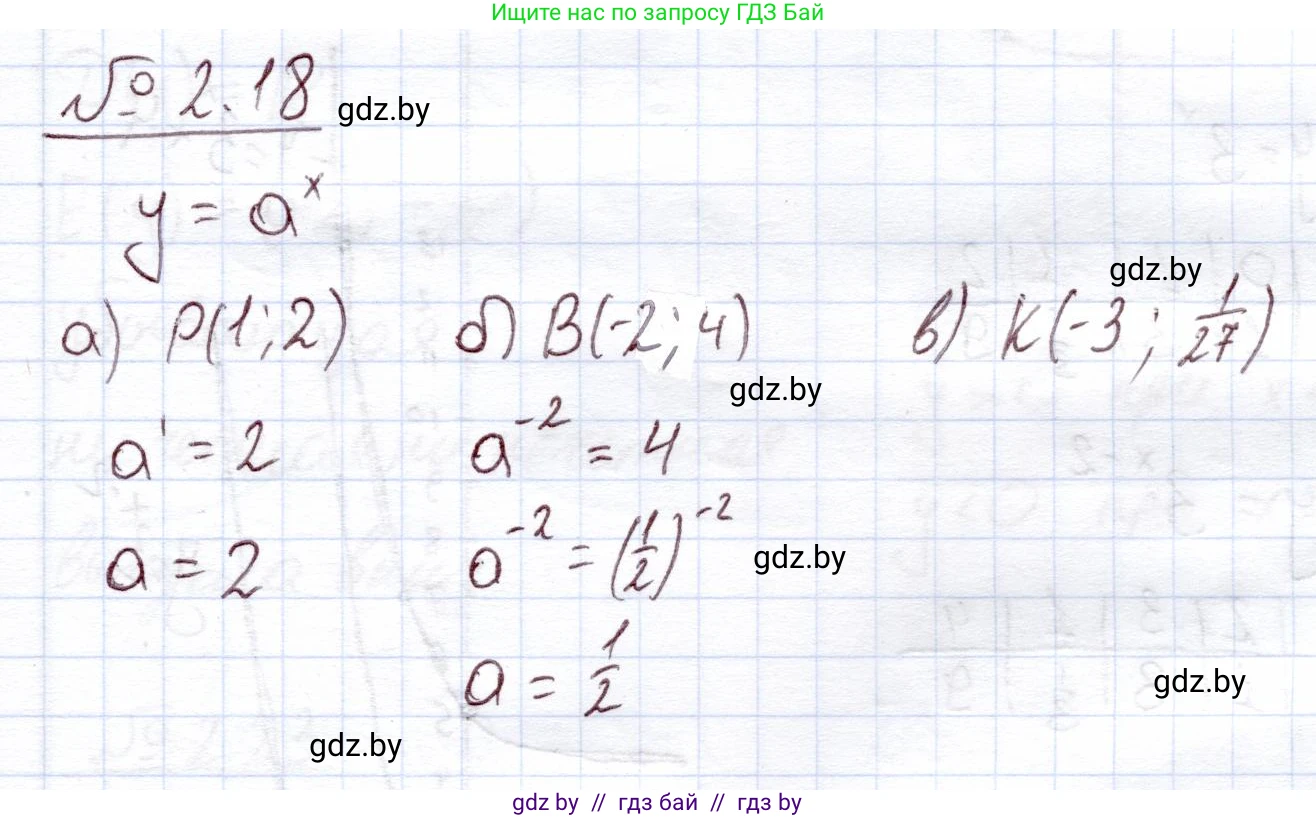 Ищите нас по запросу ГДЗ Бай
№ 2.18 gdz.by
y = a^x
gdz.by
а) P(1; 2) б) B(-2; 4) в) K(-3; 1/27)
gdz.by
a^1 = 2 a^-2 = 4
a = 2 a^-2 = (1/2)^-2 gdz.by
a = 1/2
gdz.by
gdz.by
gdz by // гдз бай // гдз by